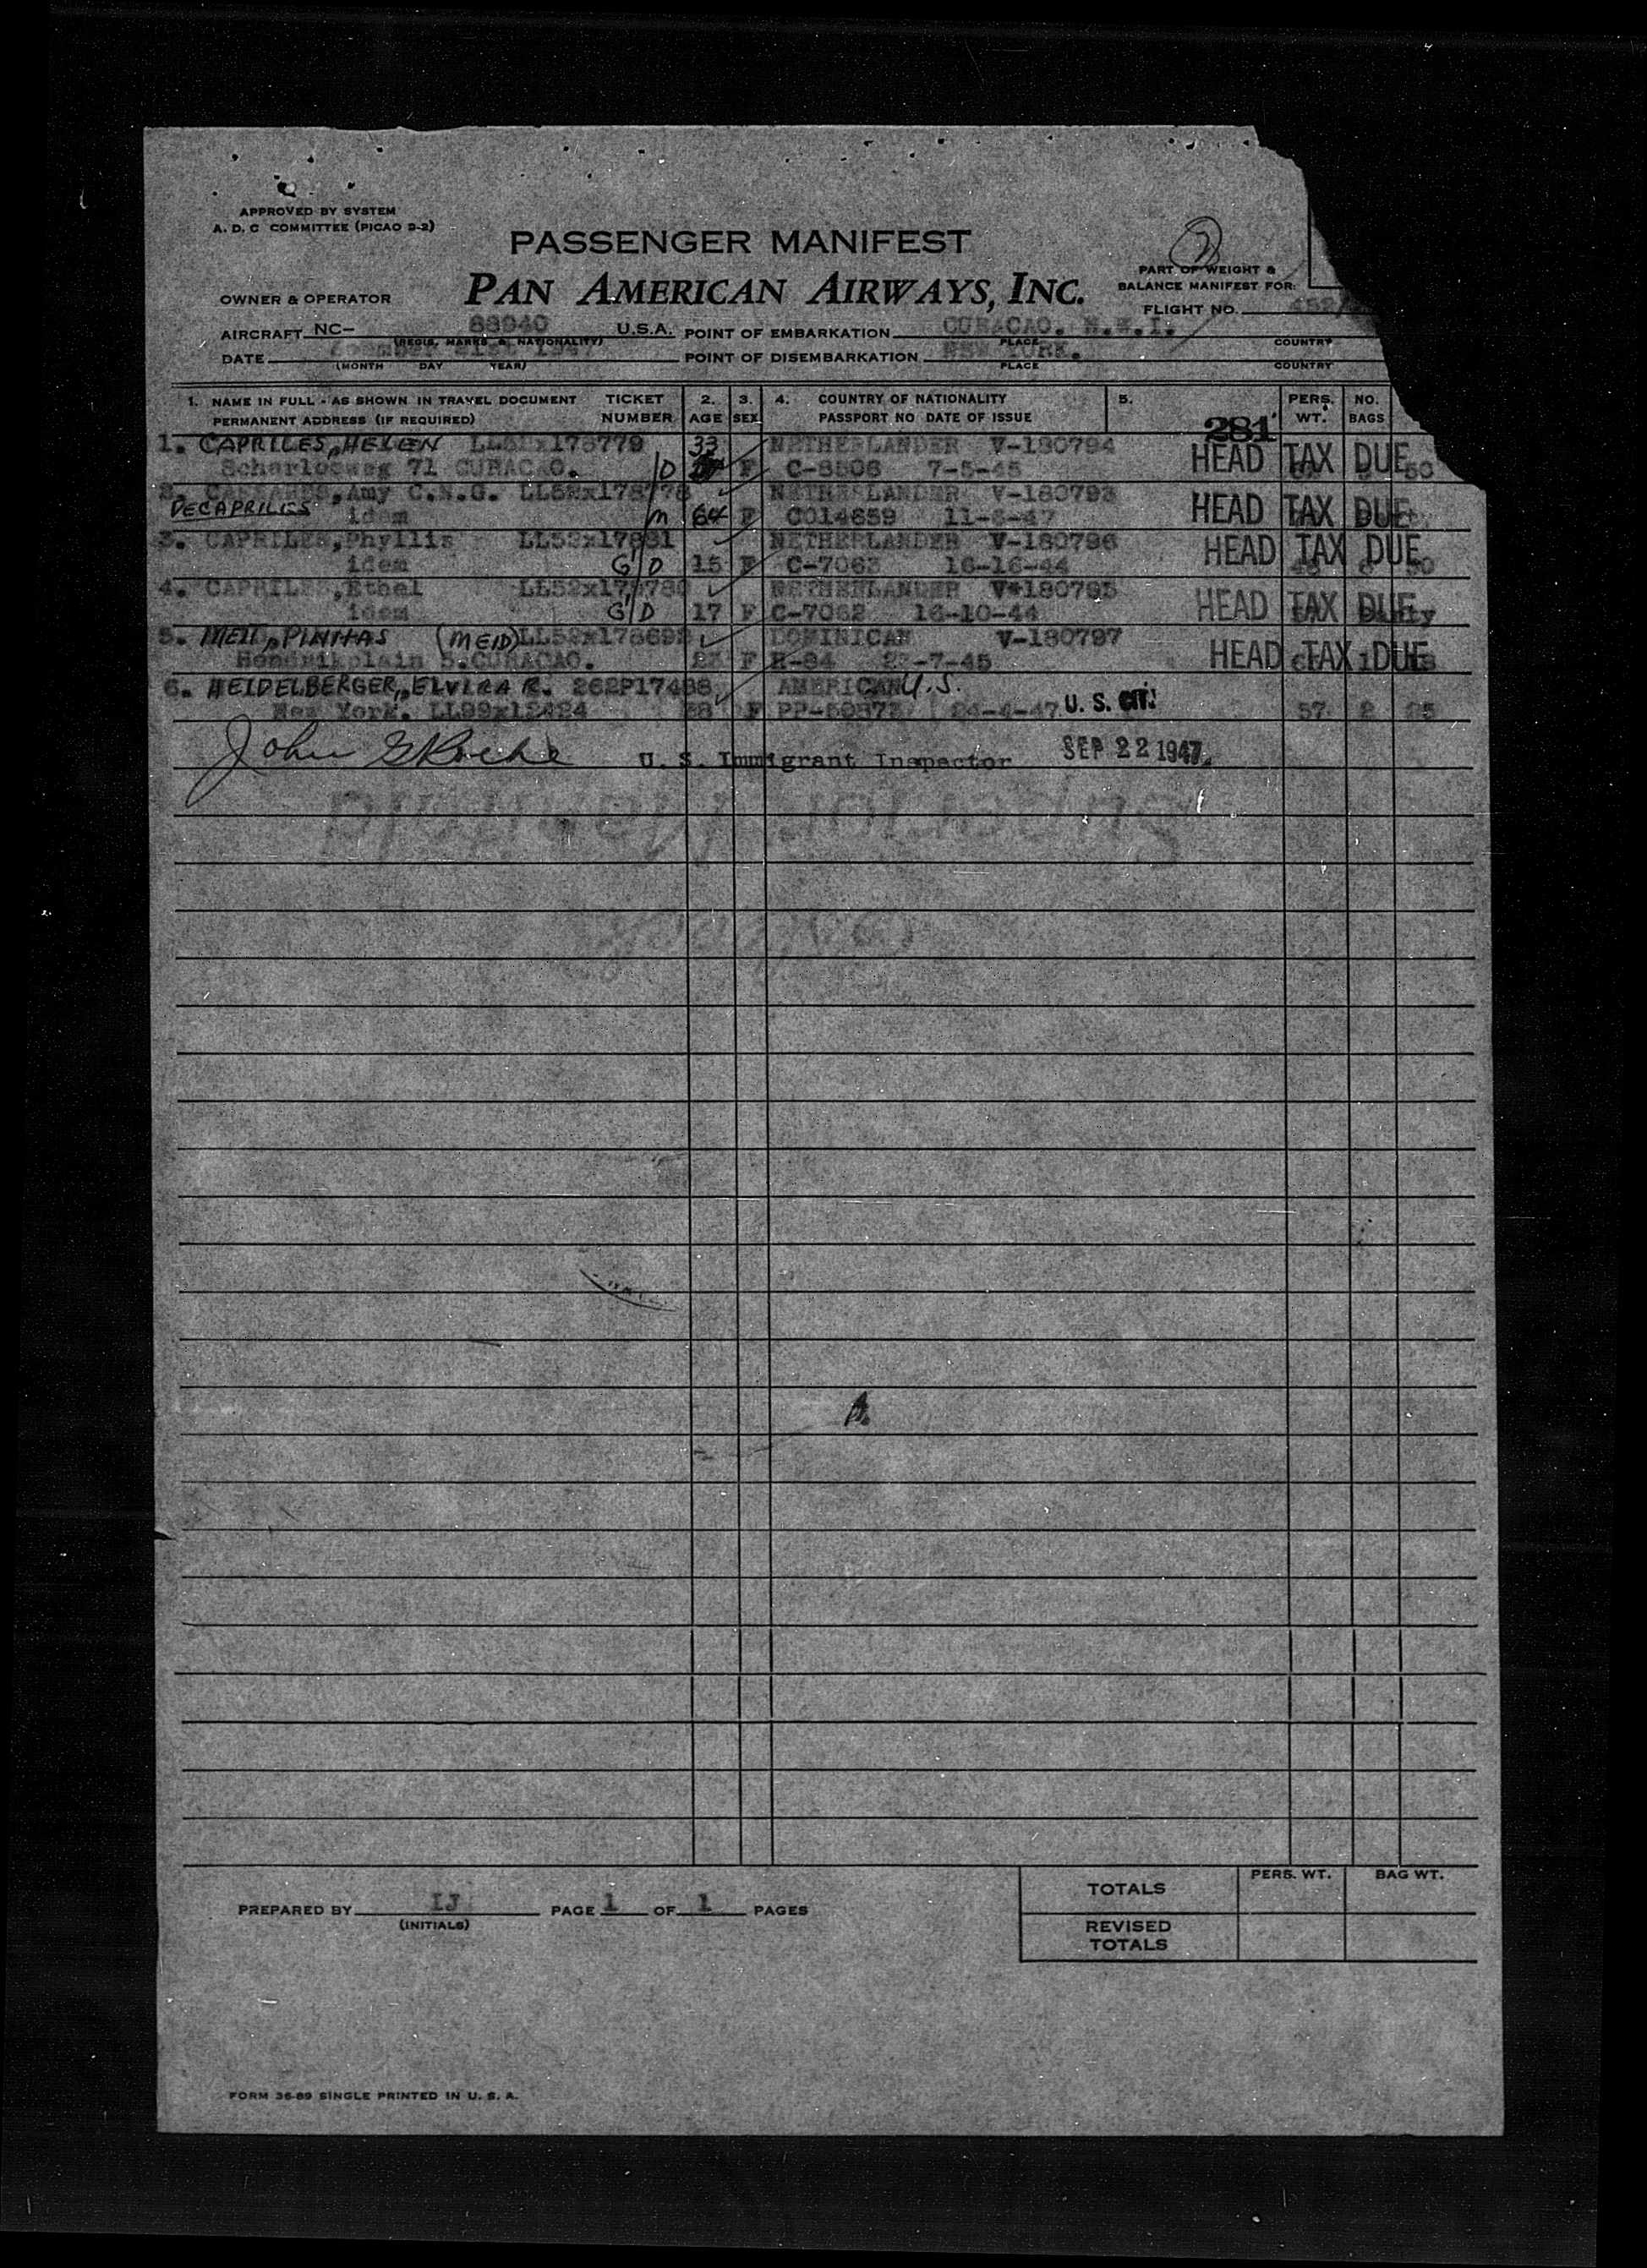 APPROVED BY SYSTEM
A. D. C COMMITTEE (PICAO D-2)
PASSENGER MANIFEST
PAN AMERICAN AIRWAYS, INC.
2
PART OF WEIGHT &
BALANCE MANIFEST FOR:
OWNER & OPERATOR
FLIGHT NO. 452/
AIRCRAFT NC- 88940 U.S.A. POINT OF EMBARKATION CURACAO. N.W.I.
(REGIS. MARKS & NATIONALITY) PLACE COUNTRY
DATE 21st 1947 POINT OF DISEMBARKATION NEW YORK.
(MONTH DAY YEAR) PLACE COUNTRY
1. NAME IN FULL - AS SHOWN IN TRAVEL DOCUMENT TICKET 2. 3. 4. COUNTRY OF NATIONALITY 5. PERS. NO.
PERMANENT ADDRESS (IF REQUIRED) NUMBER AGE SEX PASSPORT NO DATE OF ISSUE WT. BAGS
281
1. CAPRILES, HELEN 178779 33 NETHERLANDER V-180794
Scharlooweg 71 CURACAO. D F C-8506 7-5-45 HEAD TAX DUE 50
2. CAPRILES, Amy C.N.G. LL52x178778 NETHERLANDER V-180793
DECAPRILES idem M 64 F C014659 11-6-47 HEAD TAX DUE
3. CAPRILES, Phyllis LL52x17881 NETHERLANDER V-180796
idem G/D 15 F C-7063 16-16-44 HEAD TAX DUE
4. CAPRILES, Ethel LL52x178780 NETHERLANDER V-180795
idem G/D 17 F C-7062 16-10-44 HEAD TAX DUE
5. MEIT, PINHAS (MEID) LL52x178692 DOMINICAN V-180797
Hendrikplein 5. CURACAO. 23 F H-84 -7-45 HEAD TAX DUE
6. HEIDELBERGER, ELVIRA R. 262P17488 AMERICAN U.S.
New York. LL99x12424 38 F PP-59873 24-4-47 U. S. CIT. 57 2 25
John G Roche U. S. Immigrant Inspector SEP 22 1947
PREPARED BY IJ PAGE 1 OF 1 PAGES
(INITIALS)
PERS. WT. BAG WT.
TOTALS
REVISED
TOTALS
FORM 36-89 SINGLE PRINTED IN U. S. A.